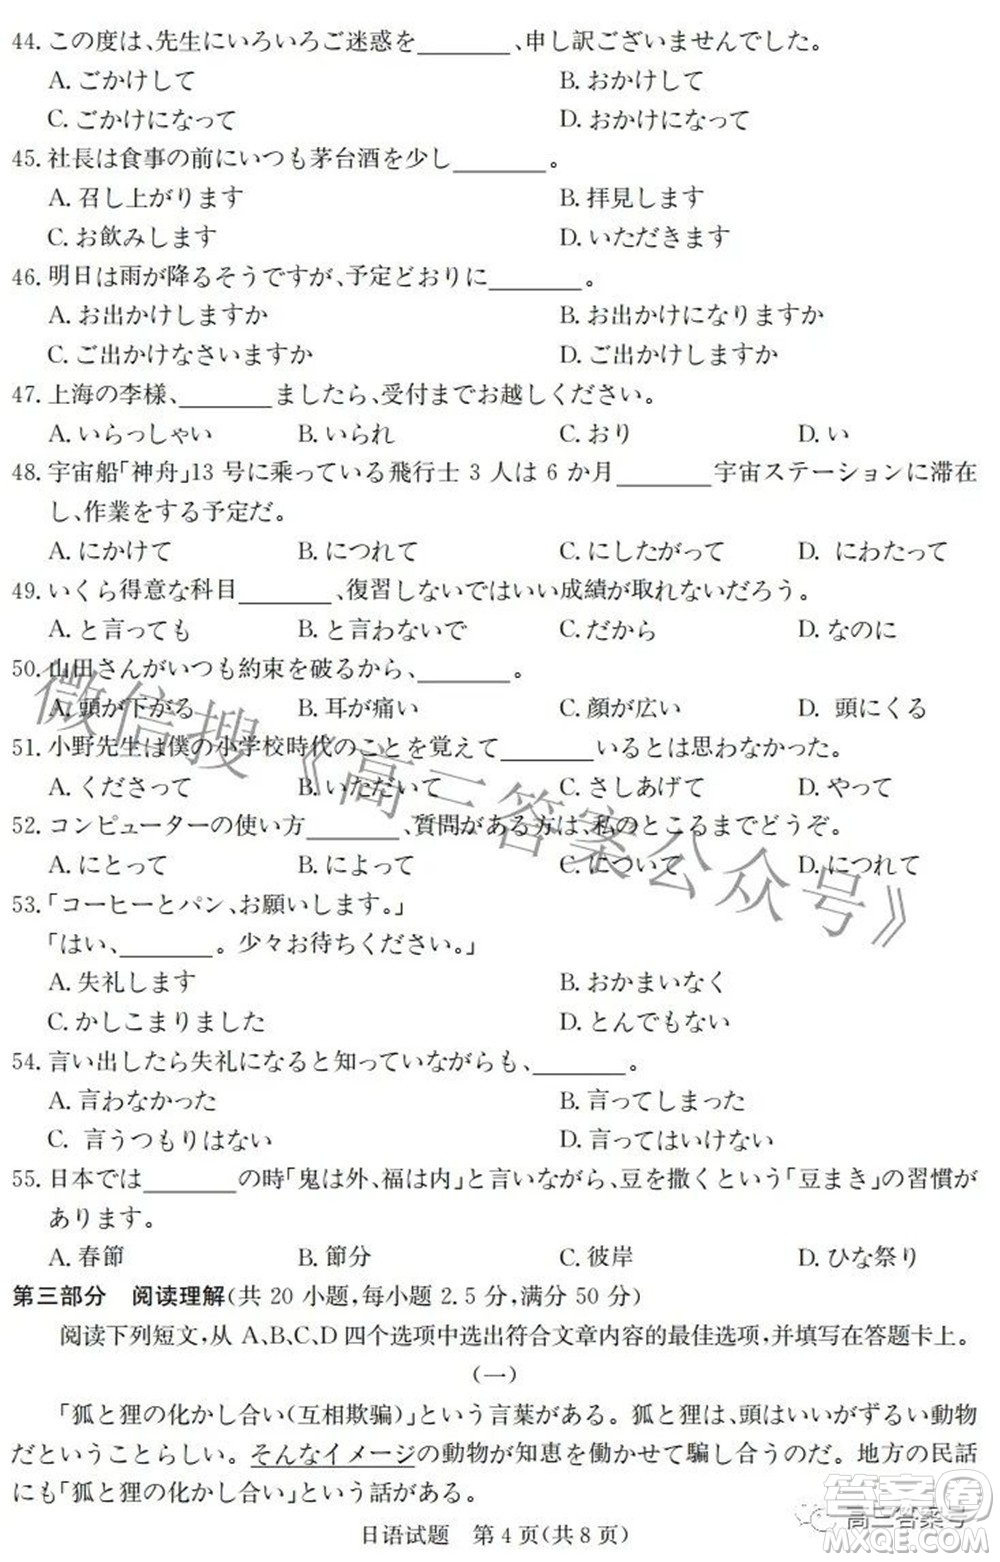 44. この度は、先生にいろいろご迷惑を________、申し訳ございませんでした。
A. ごかけして B. おかけして
C. ごかけになって D. おかけになって
45. 社長は食事の前にいつも茅台酒を少し________。
A. 召し上がります B. 拝見します
C. お飲みします D. いただきます
46. 明日は雨が降るそうですが、予定どおりに________。
A. お出かけしますか B. お出かけになりますか
C. ご出かけなさいますか D. ご出かけしますか
47. 上海の李様、________ましたら、受付までお越しください。
A. いらっしゃい B. いられ C. おり D. い
48. 宇宙船「神舟」13 号に乗っている飛行士 3 人は 6 か月________宇宙ステーションに滞在
し、作業をする予定だ。
A. にかけて B. につれて C. にしたがって D. にわたって
49. いくら得意な科目________、復習しないではいい成績が取れないだろう。
A. と言っても B. と言わないで C. だから D. なのに
50. 山田さんがいつも約束を破るから、________。
A. 頭が下がる B. 耳が痛い C. 顔が広い D. 頭にくる
51. 小野先生は僕の小学校時代のことを覚えて________いるとは思わなかった。
A. くださって B. いただいて C. さしあげて D. やって
52. コンピューターの使い方________、質問がある方は、私のところまでどうぞ。
A. にとって B. によって C. について D. につれて
53. 「コーヒーとパン、お願いします。」
「はい、________。少々お待ちください。」
A. 失礼します B. おかまいなく
C. かしこまりました D. とんでもない
54. 言い出したら失礼になると知っていながらも、________。
A. 言わなかった B. 言ってしまった
C. 言うつもりはない D. 言ってはいけない
55. 日本では________の時「鬼は外、福は内」と言いながら、豆を撒くという「豆まき」の習慣が
あります。
A. 春節 B. 節分 C. 彼岸 D. ひな祭り
第三部分 阅读理解(共 20 小题,每小题 2.5 分,满分 50 分)
阅读下列短文,从 A、B、C、D 四个选项中选出符合文章内容的最佳选项,并填写在答题卡上。
(一)
「狐と狸の化かし合い(互相欺骗)」という言葉がある。狐と狸は、頭はいいがずるい動物
だということらしい。そんなイメージの動物が知恵を働かせて騙し合うのだ。地方の民話
にも「狐と狸の化かし合い」という話がある。
日语试题 第 4 页(共 8 页)
微信搜《高三答案公众号》
高三答案号
答案圈
MXQE.COM